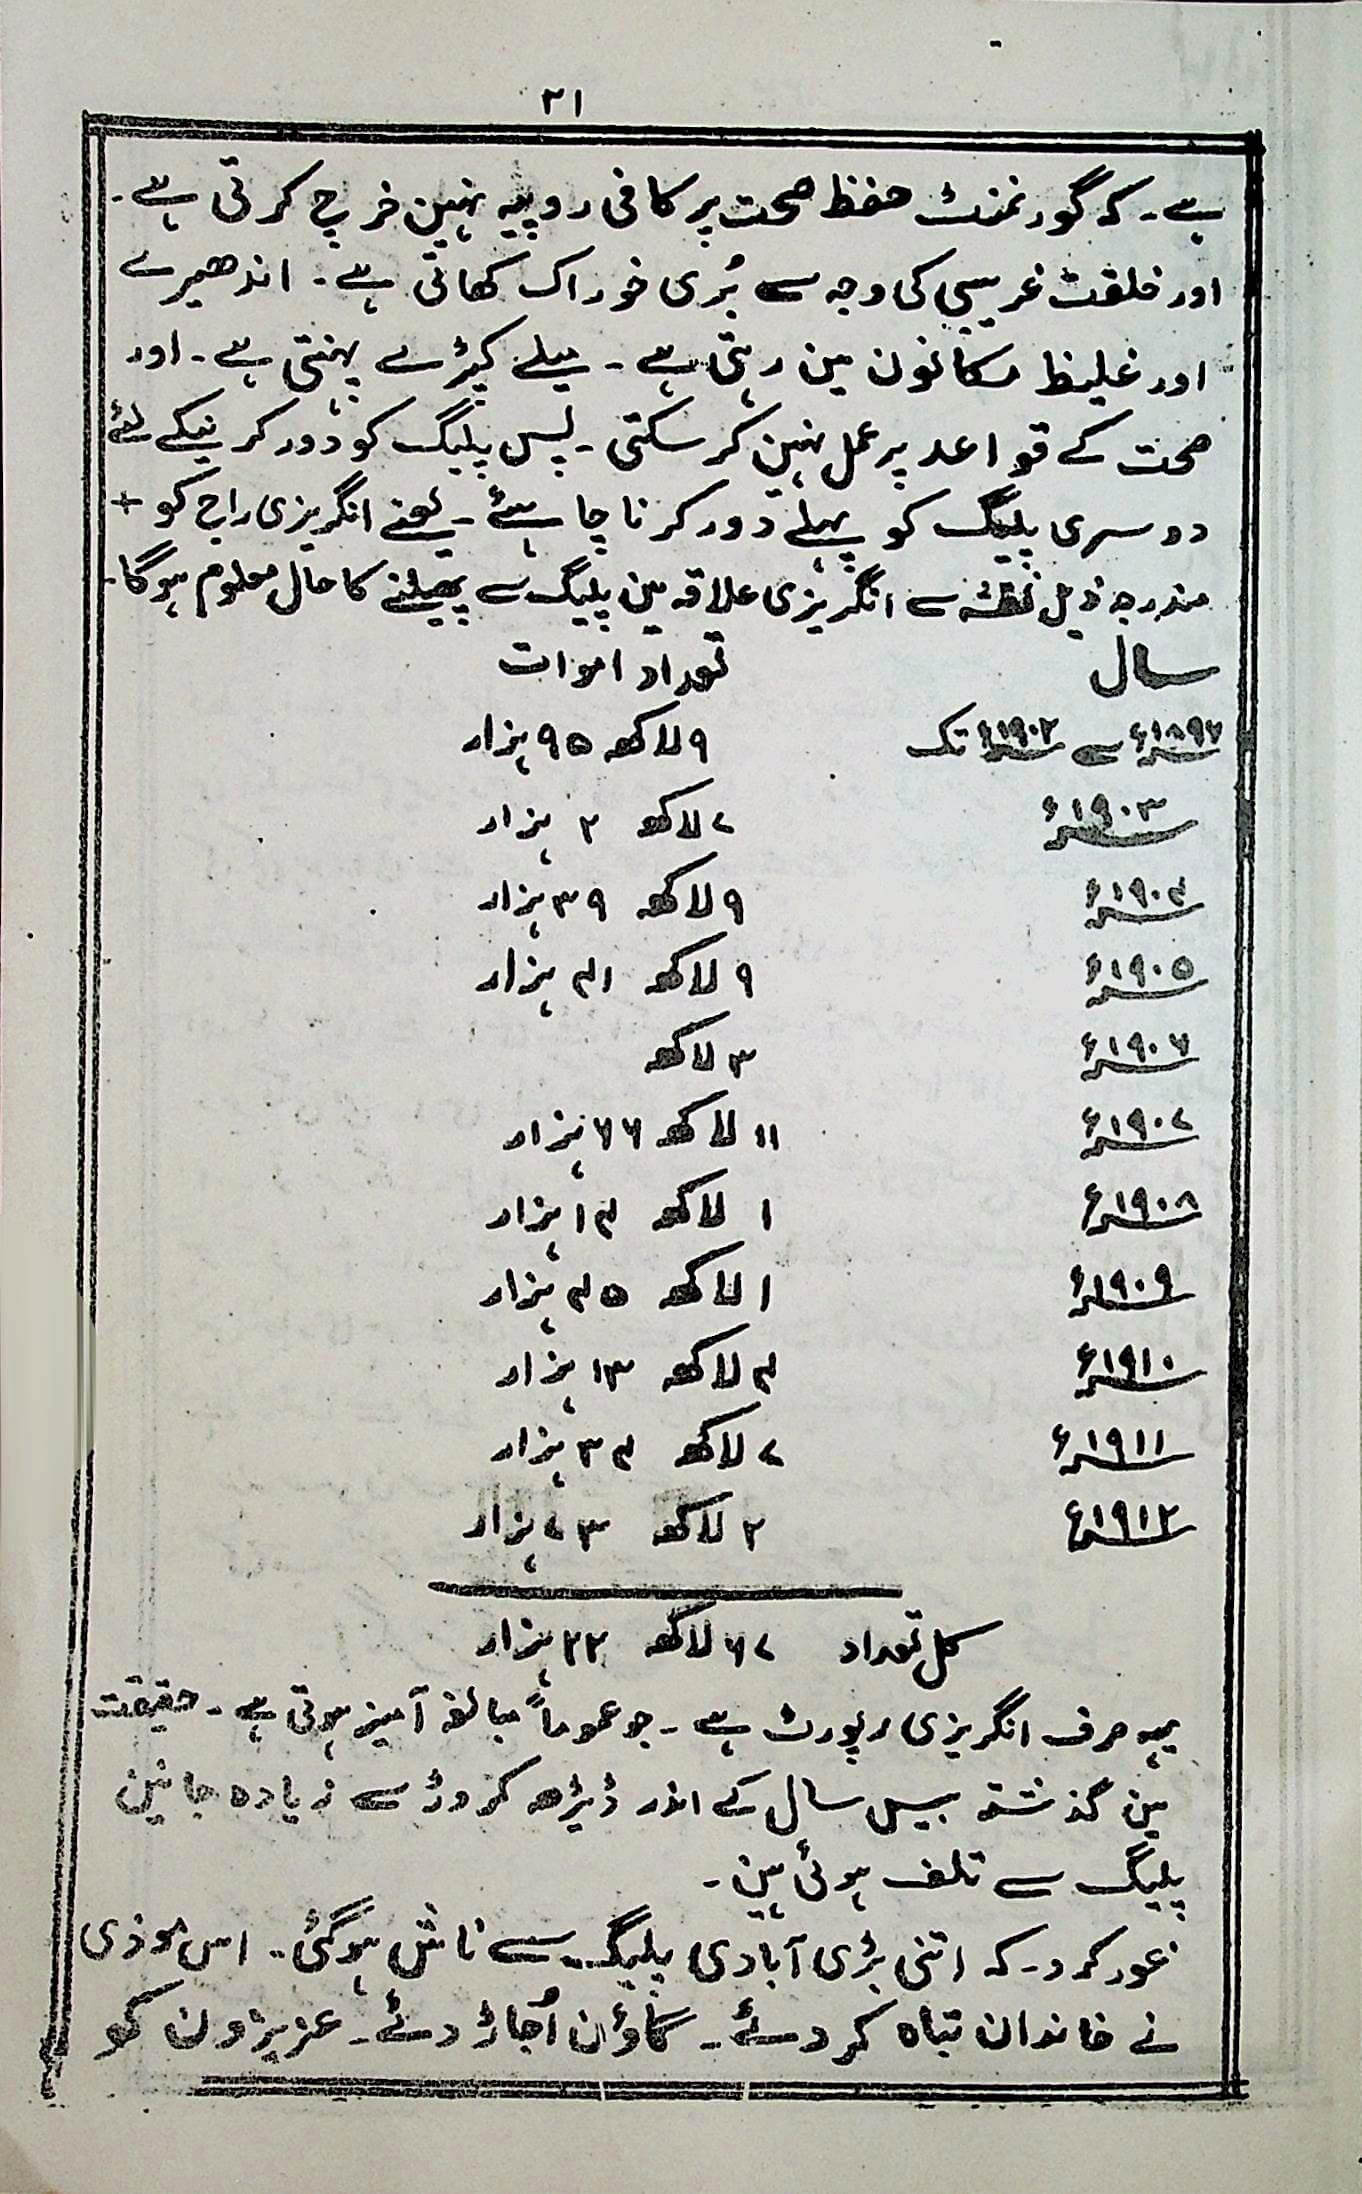 ۲۱
ہے۔ کہ گورنمنٹ حفظ صحت پر کافی روپیہ نہین خرچ کرتی ہے۔
اور خلقت غریبی کی وجہ سے بُری خوراک کھاتی ہے۔ اندھیرے
اور غلیظ مکانون مین رہتی ہے۔ میلے کپڑے پہنتی ہے۔ اور
صحت کے قواعد پر عمل نہین کرسکتی۔ پس پلیگ کو دور کرنیکے لئے
دوسری پلیگ کو پہلے دور کرنا چاہئے۔ یعنے انگریزی راج کو +
مندرجہ ذیل نقشہ سے انگریزی علاقہ مین پلیگ سے پھیلنے کا حال معلوم ہوگا۔
سال تعداد اموات
۱۸۹۷ء سے ۱۹۰۲ء تک ۹ لاکھ ۹۵ ہزار
۱۹۰۳ء ۷ لاکھ ۲ ہزار
۱۹۰۴ء ۹ لاکھ ۳۹ ہزار
۱۹۰۵ء ۹ لاکھ ۴۱ ہزار
۱۹۰۶ء ۳ لاکھ
۱۹۰۷ء ۱۱ لاکھ ۶۶ ہزار
۱۹۰۸ء ۱ لاکھ ۱۴ ہزار
۱۹۰۹ء ۱ لاکھ ۴۵ ہزار
۱۹۱۰ء ۴ لاکھ ۱۳ ہزار
۱۹۱۱ء ۷ لاکھ ۳۴ ہزار
۱۹۱۲ء ۲ لاکھ ۷۳ ہزار
کل تعداد ۶۷ لاکھ ۲۲ ہزار
یہہ صرف انگریزی رپورٹ ہے۔ جو عموماً مبالغہ آمیز ہوتی ہے۔ حقیقت
مین گذشتہ بیس سال کے اندر ڈیڑھ کروڑ سے زیادہ جانین
پلیگ سے تلف ہوئی ہین۔
غور کرو۔ کہ اتنی بڑی آبادی پلیگ سے ناش ہوگئی۔ اس موذی
نے خاندان تباہ کردئے۔ گاؤن اُجاڑ دئے۔ عزیزون کو